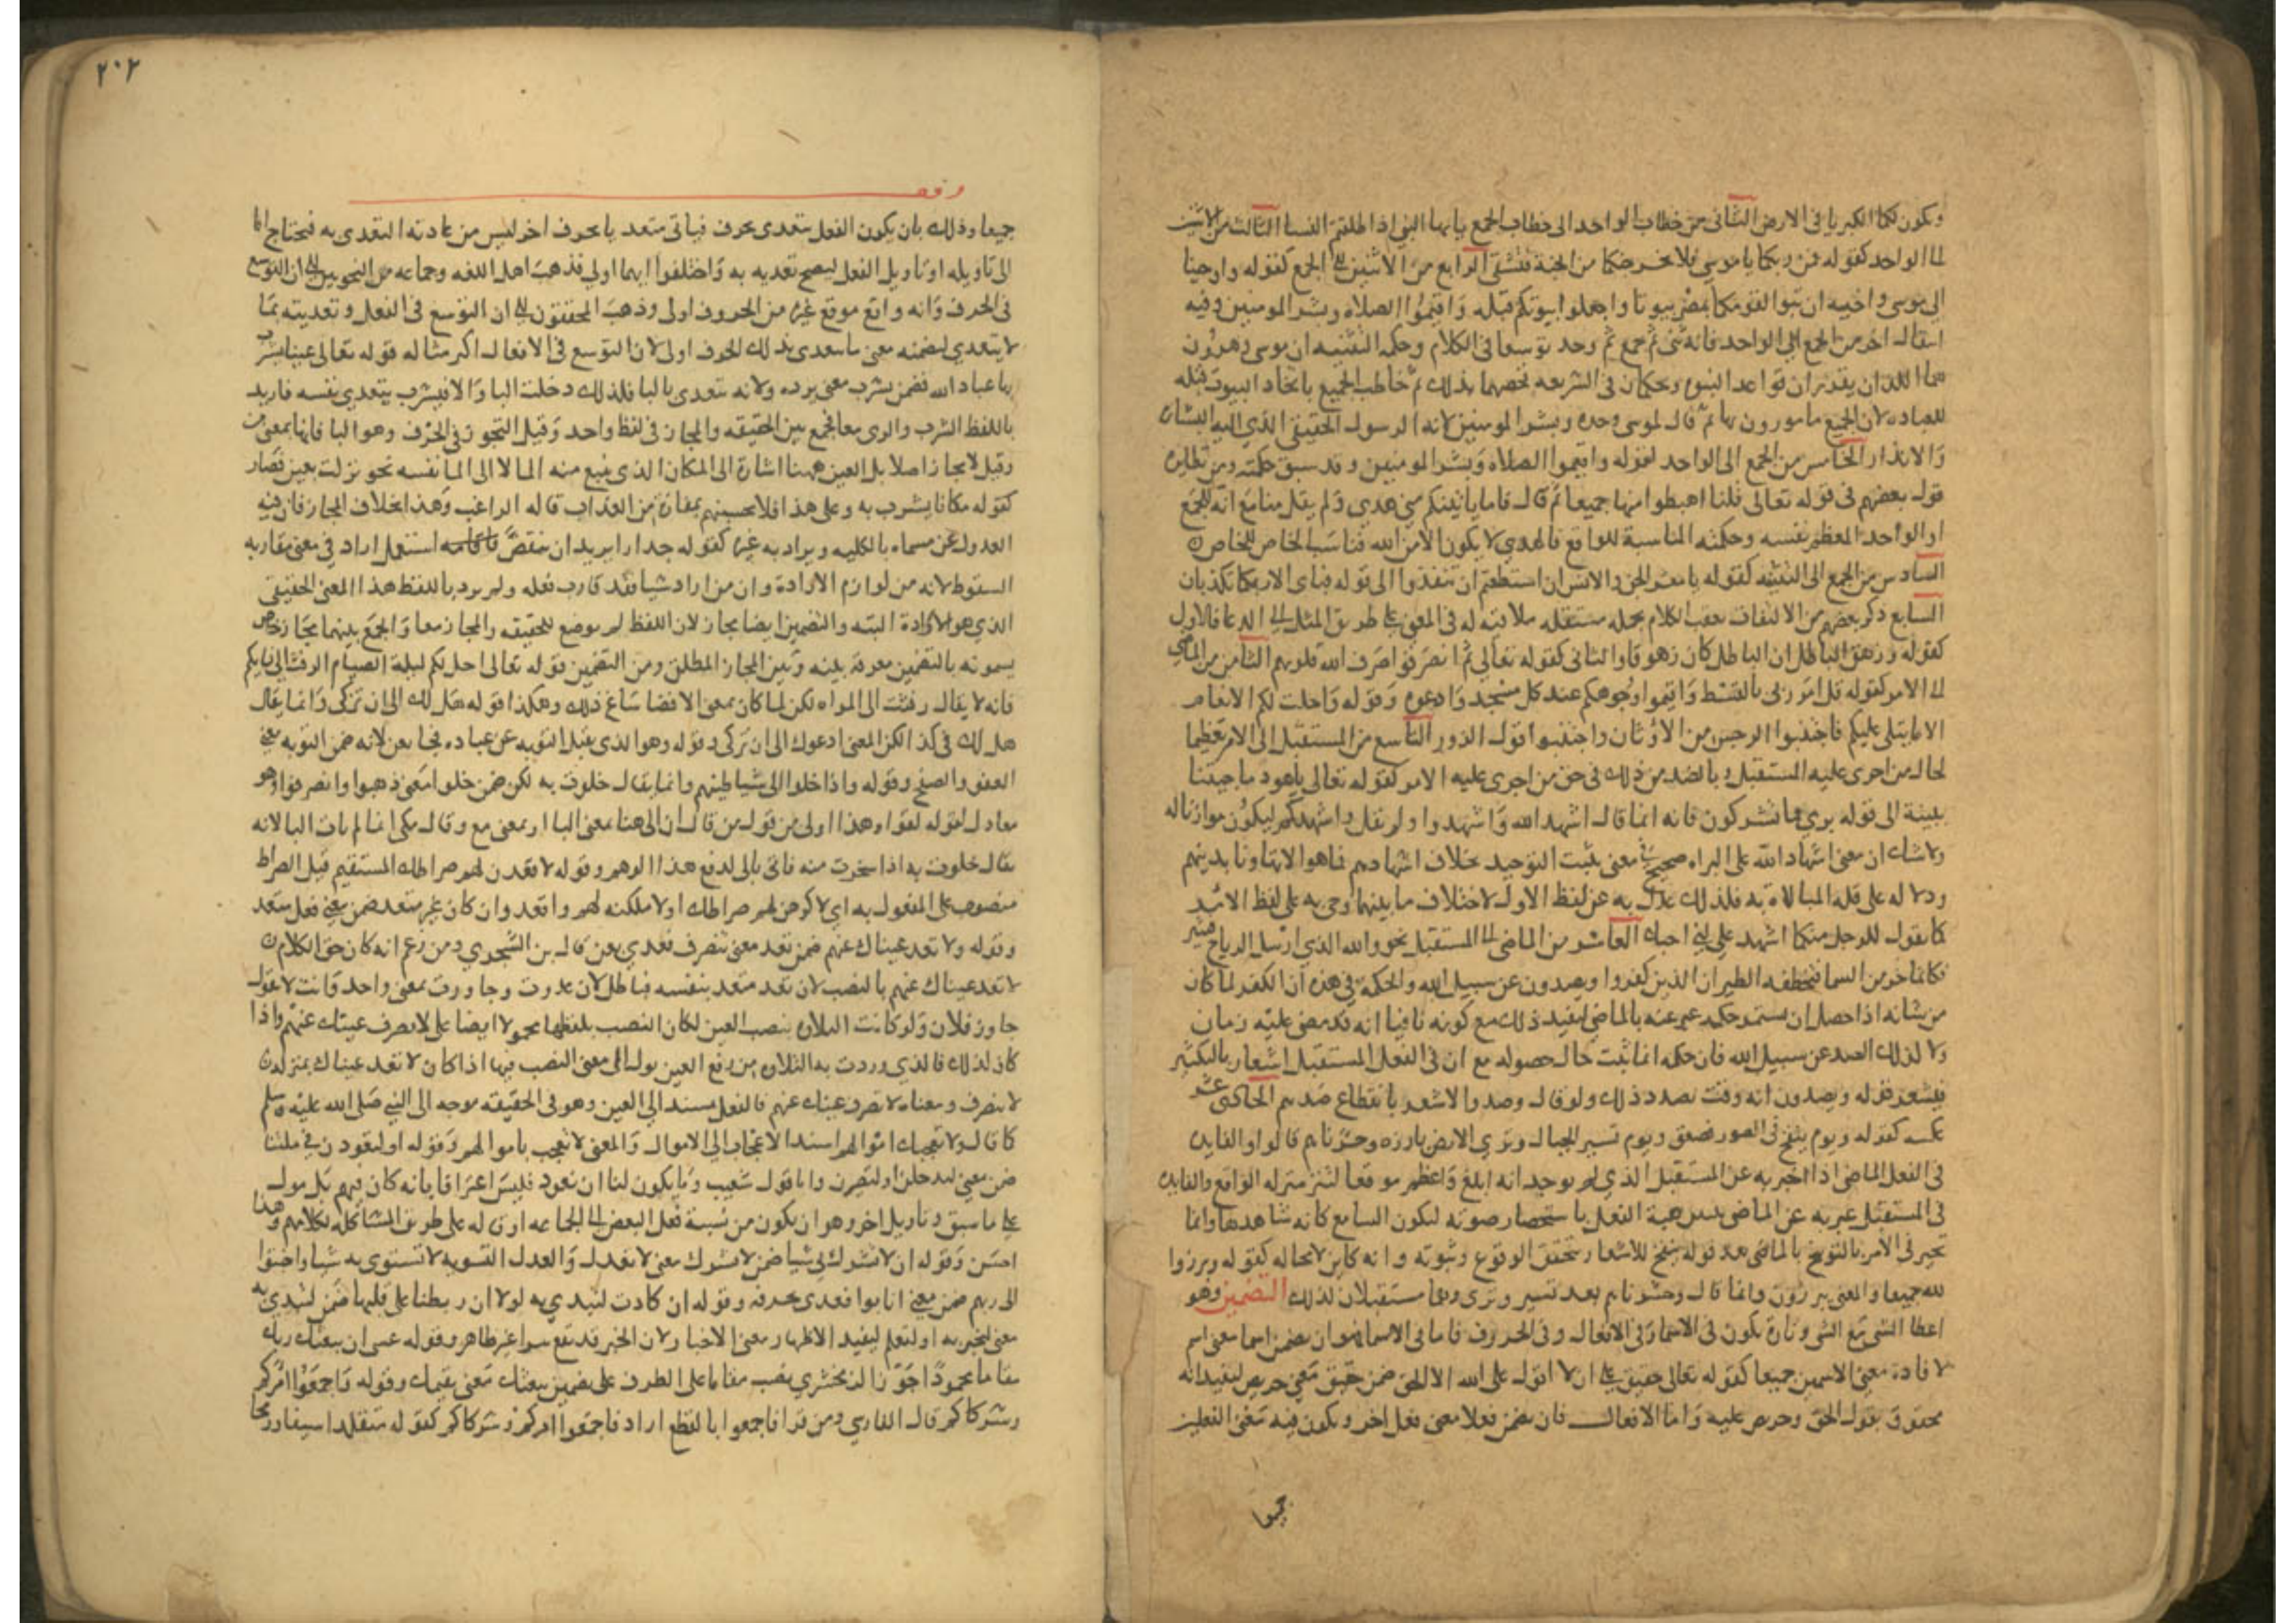 وتكون لكما الكبريا في الارض الثاني من خطاب الواحد الى خطاب الجمع يايها النبي اذا طلقتم النسا الثالث من الاثنين
الى الواحد كقوله فمن ربكما يا موسى فلا يخرجنكما من الجنة فتشقى الرابع من الاثنين الى الجمع كقوله واوحينا
الى موسى واخيه ان تبوا لقومكما بمصر بيوتا واجعلوا بيوتكم قبله واقيموا الصلاه وبشر المومنين وفيه
انتقال اخر من الجمع الى الواحد فانه ثنى ثم جمع ثم وحد توسعا في الكلام وحكمه التثنيه ان موسى وهرون
هما اللذان يقرران قواعد النبوه ويحكمان في الشريعه فخصهما بذلك ثم خاطب الجميع باتخاذ البيوت قبله
للعباده لان الجميع مامورون بها ثم قال لموسى وحده وبشر المومنين لانه الرسول الحقيقي الذي اليه البشاره
والانذار الخامس من الجمع الى الواحد كقوله واقيموا الصلاه وبشر المومنين وقد سبق حكمته ومن نظايره
قول بعضهم في قوله تعالى قلنا اهبطوا منها جميعا ثم قال فاما ياتينكم مني هدي ولم يقل منا مع انه للجمع
او الواحد المعظم نفسه وحكمته المناسبة للواقع فالهدي لا يكون الا من الله فناسب الخاص للخاص
السادس من الجمع الى التثنيه كقوله يا معشر الجن والانس ان استطعتم ان تنفذوا الى قوله فباي الا ربكما تكذبان
السابع ذكر بعضهم من الالتفات تعقب الكلام بجمله مستقله ملاقيه له في المعنى على طريق المثل الى الدعا فالاول
كقوله وزهق الباطل ان الباطل كان زهوقا والثاني كقوله تعالى ثم انصرفوا صرف الله قلوبهم الثامن من الماضي
الى الامر كقوله قل امر ربي بالقسط واقيموا وجوهكم عند كل مسجد وادعوه وقوله واحلت لكم الانعام
الا ما يتلى عليكم فاجتنبوا الرجس من الاوثان واجتنبوا قول الزور التاسع من المستقبل الى الامر تعظيما
لحال من اجرى عليه المستقبل وبالضد من ذلك في حق من اجرى عليه الامر كقوله تعالى ياهود ما جيتنا
ببينة الى قوله بري مما تشركون فانه انما قال اشهد الله واشهدوا ولم يقل واشهدكم ليكون موازنا له
ولا شك ان معنى اشهاد الله على البراه صحيح في معنى يثبت التوحيد بخلاف اشهادهم فما هو الا تهاونا بدينهم
ودلاله على قله المبالاه به فلذلك عدل به عن لفظ الاول لاختلاف ما بينهما وجي به على لفظ الامر
كما يقول للرجل منكما اشهد على اني احبك العاشر من الماضي الى المستقبل نحو والله الذي ارسل الرياح فتثير
فكانما خر من السما فتخطفه الطير ان الذين كفروا ويصدون عن سبيل الله والحكمة في هذه ان الكفر لما كان
من شانه اذا حصل ان يستمر حكمه عبر عنه بالماضي ليفيد ذلك مع كونه نافيا انه قد مضى عليه زمان
ولا كذلك الصد عن سبيل الله فان حكمه انما ثبت حال حصوله مع ان في الفعل المستقبل اشعار بالتكثير
فيشعر قوله ويصدون انه وقت بصدد ذلك ولو قال وصدوا لاشعر بانقطاع صدهم الحادي عشر
عكسه كقوله ويوم ينفخ في الصور فصعق ويوم تسير الجبال وتري الارض بارزه وحشرناهم قالوا والفايده
في الفعل الماضي اذا اخبر به عن المستقبل الذي لم يوجد انه ابلغ واعظم موقعا لتنزله منزله الواقع والفايده
في المستقبل عبر به عن الماضي تبيين هيية الفعل باستحضار صوته ليكون السامع كانه شاهدها وانما
تحير في الامر بالتوبيخ بالماضي بعد قوله ينفخ للاشعار بتحقق الوقوع وثبوته وانه كاين لا محاله كقوله وبرزوا
لله جميعا والمعنى يبرزون وانما قال وحشرناهم بعد تسير وترى وهما مستقبلان لذلك التضمين وهو
اعطا الشي مع الشي وتارة يكون في الاسما وفي الافعال وفي الحروف فاما في الاسما فهو ان يضمن اسما معنى اسم
لافادة معنى الاسمين جميعا كقوله تعالى حقيق على ان لا اقول على الله الا الحق ضمن حقيق معنى حريص ليفيد انه
محقوق بقول الحق وحريص عليه واما الافعال فان يضمن فعلا معنى فعل اخر ويكون فيه معنى الفعلين
جميعا
٢٠٢
جميعا وذلك بان يكون الفعل يتعدى بحرف فياتي متعديا بحرف اخر ليس من عادته التعدي به فيحتاج اما
الى تاويله او تاويل الفعل ليصح تعديه به واختلفوا ايهما اولى فذهب اهل اللغه وجماعه من النحويين الى ان التوسع
في الحرف وانه واقع موقع غيره من الحروف اولى وذهب المحققون الى ان التوسع في الفعل وتعديته بما
لا يتعدي لتضمنه معنى ما يتعدى بذلك الحرف اولى لان التوسع في الافعال اكثر مثاله قوله تعالى عينا يشرب
بها عباد الله فضمن يشرب معنى يروه ولانه يتعدى بالبا فلذلك دخلت البا والا فيشرب يتعدى بنفسه فاريد
باللفظ الشرب والري معا فجمع بين الحقيقه والمجاز في لفظ واحد وقيل التجوز في الحرف وهو البا فانها بمعنى من
وقيل لا مجاز اصلا بل العين ههنا اشارة الى المكان الذي ينبع منه الما لا الى الما نفسه نحو نزلت بعين فصار
كقوله مكانا يشرب به وعلى هذا فلا تحسبنهم بمفازة من العذاب قاله الراغب وهذا بخلاف المجاز فان فيه
العدول عن مسماه بالكليه ويراد به غيره كقوله جدارا يريد ان ينقض فاقامه استعمل اراد في معنى مقاربه
السقوط لانه من لوازم الارادة وان من اراد شيا فقد قارب فعله ولم يرد باللفظ هذا المعنى الحقيقي
الذي هو الارادة البته والتضمين ايضا مجاز لان اللفظ لم يوضع للحقيقه والمجاز معا والجمع بينهما مجاز خاص
يسمونه بالتضمين معرفة بينه وبين المجاز المطلق ومن التضمين قوله تعالى احل لكم ليلة الصيام الرفث الى نسايكم
فانه لا يقال رفثت الى المراه لكن لما كان بمعنى الافضا ساغ ذلك وهكذا قوله هل لك الى ان تزكى وانما يقال
هل لك في كذا لكن المعنى ادعوك الى ان تزكى وقوله وهو الذي يقبل التوبه عن عباده فجا بعن لانه ضمن التوبه معنى
العفو والصفح وقوله واذا خلوا الى شياطينهم وانما يقال خلوت به لكن ضمن خلوا معنى ذهبوا وانصرفوا وهو
معادل لقوله لقوا وهذا اولى من قول من قال ان الى هنا بمعنى البا او بمعنى مع وقال مكي انما لم يات البا لانه
يقال خلوت به اذا سخرت منه فاتى بالى لدفع هذا الوهم وقوله لاقعدن لهم صراطك المستقيم قيل الصراط
منصوب على المفعول به اي لاكرمن لهم صراطك او لا ملكنه لهم واقعد وان كان غير متعد ضمن معنى فعل متعد
وقوله ولا تعد عيناك عنهم ضمن تعد معنى تنصرف فعدي بعن قال بن الشجري ومن زعم انه كان حق الكلام
لا تعد عينيك عنهم بالنصب لان تعد متعد بنفسه فباطل لان عدوت وجاوزت بمعنى واحد وانت لا تقول
جاوز فلان ولو كانت التلاوه بنصب العين لكان النصب بلفظها محمولا ايضا على لا تصرف عينيك عنهم واذا
كان كذلك فالذي وردت به التلاوه من رفع العين يول الى معنى النصب فيها اذا كان لا تعد عيناك بمنزله
لا تنصرف ومعناه لا تصرف عينك عنهم فالفعل مسند الى العين وهو في الحقيقه موجه الى النبي صلى الله عليه وسلم
كما قال ولا تعجبك اموالهم اسند الاعجاب الى الاموال والمعنى لا تعجب باموالهم وقوله او لتعودن في ملتنا
ضمن معنى لتدخلن او لتصيرن واما قول شعيب وما يكون لنا ان نعود فليس اعترافا بانه كان فيهم بل مول
على ما سبق وتاويل اخر وهو ان يكون من نسبة فعل البعض الى الجماعه او قاله على طريق المشاكله لكلامهم وهذا
احسن وقوله ان لا تشرك بي شيا ضمن لا تشرك معنى لا تعدل والعدل التسويه لا تستوي به شيا واخبتوا
الى ربهم ضمن معنى انابوا فعدى بحرفه وقوله ان كادت لتبدي به لولا ان ربطنا على قلبها ضمن لتبدي به
معنى لتخبر به او لتعلم ليفيد الاظهار معنى الاخبار لان الخبر قد يقع سرا غير ظاهر وقوله عسى ان يبعثك ربك
مقاما محمودا جوز الزمخشري نصب مقاما على الظرف على تضمين يبعثك معنى يقيمك وقوله فاجمعوا امركم
وشركاكم قال الفارسي ومن قرا فاجمعوا بالقطع اراد فاجمعوا امركم وشركاكم كقوله متقلدا سيفا ورمحا